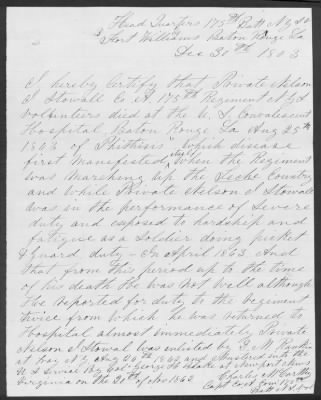 Head Quarters 175th Batt N.Y.S.V
Fort Williams Baton Rouge La
Dec 30th 1863
I hereby Certify that Private Nelson
I Stowall Co A. 175th Regiment N.Y.S.
volunteers died at the U. S. Convalescent
Hospital, Baton Rouge La Aug 25th
1863 of "Phthisis" which disease
first Manefested itself when the Regiment
was Marching up the Teche Country
and while Private Nelson I Stowall
was in the performance of Severe
duty and exposed to hardship and
fatigue as a Soldier doing picket
& Guard duty - In April 1863. And
that from this period up to the time
of his death He was not Well although
He Reported for duty to the Regiment
twice from which he was returned to
Hospital almost immediately Private
Nelson I Stowal was enlisted by
at Troy N.Y Aug 26th 1862 and Mustered into the
U S Service by Col. George at Newport News
Virginia on the 20th of Nov 1862
Charles McCarthy
Capt
Batt N.Y. Vol